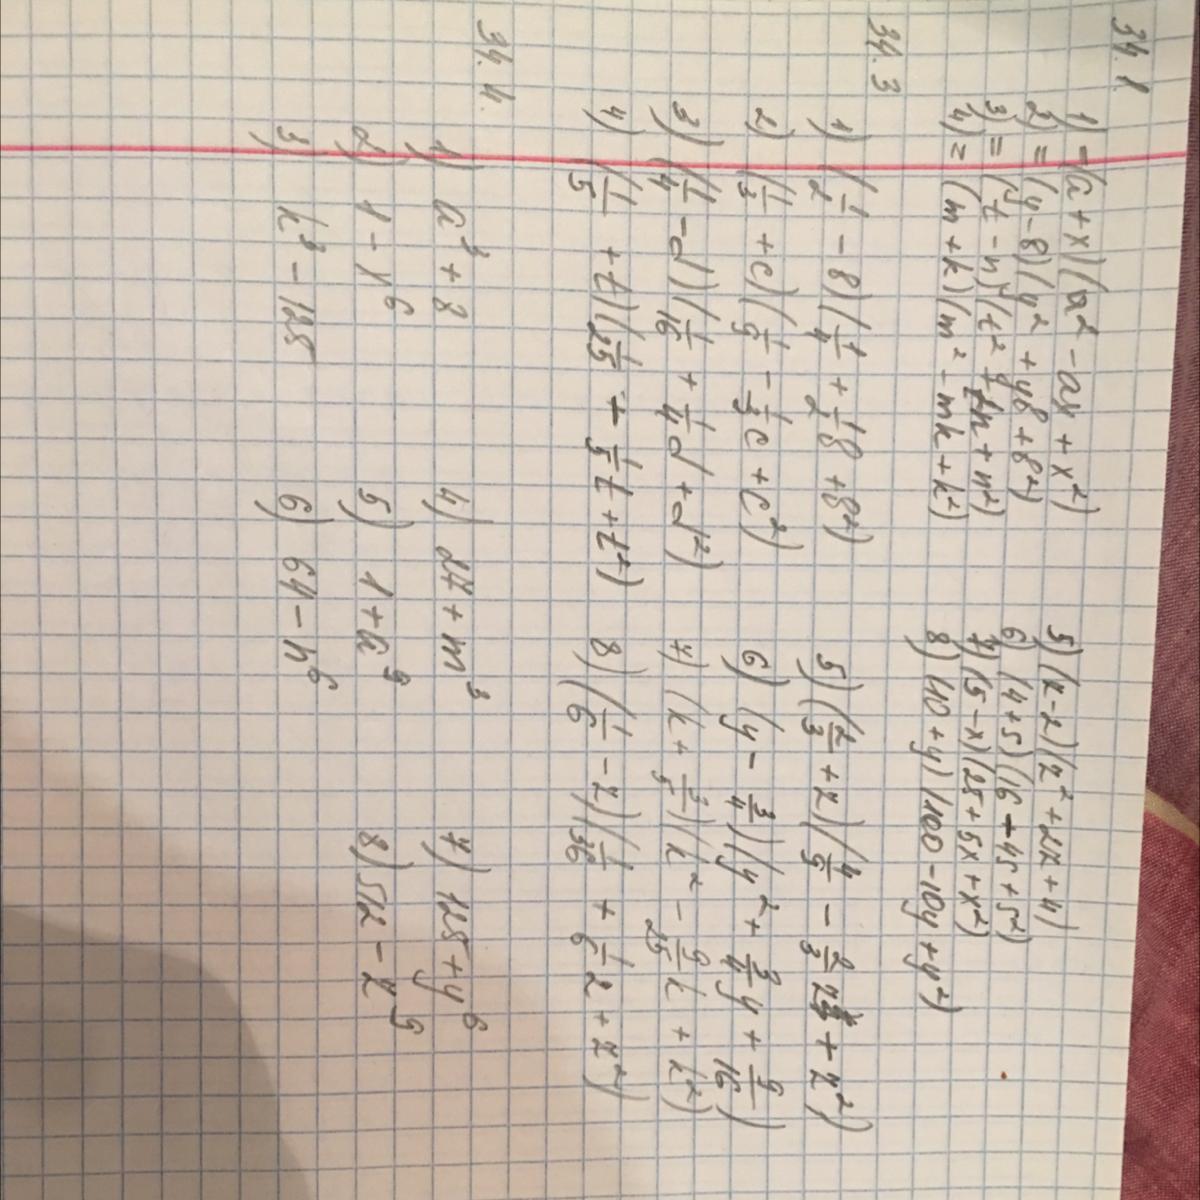 34.1.
1) = (a + x)(a² - ax + x²)
2) = (y - 8)(y² + y8 + 8²)
3) = (t - n)(t² + tn + n²)
4) = (m + k)(m² - mk + k²)
5) (z - 2)(z² + 2z + 4)
6) (4 + 5)(16 - 45 + 5²)
7) (5 - x)(25 + 5x + x²)
8) (10 + y)(100 - 10y + y²)
34.3
1) (1/2 - 8)(1/4 + 1/2 8 + 8²)
2) (1/3 + c)(1/9 - 1/3 c + c²)
3) (1/4 - d)(1/16 + 1/4 d + d²)
4) (1/5 + t)(1/25 - 1/5 t + t²)
5) (2/3 + z)(4/9 - 2/3 z + z²)
6) (y - 3/4)(y² + 3/4 y + 9/16)
7) (k + 3/5)(k² - 9/25 k + k²)
8) (1/6 - z)(1/36 + 1/6 z + z²)
34.4.
1) a³ + 8
2) 1 - x⁶
3) k³ - 125
4) 27 + m³
5) 1 + a⁹
6) 64 - n⁶
7) 125 + y⁶
8) 512 - z⁹